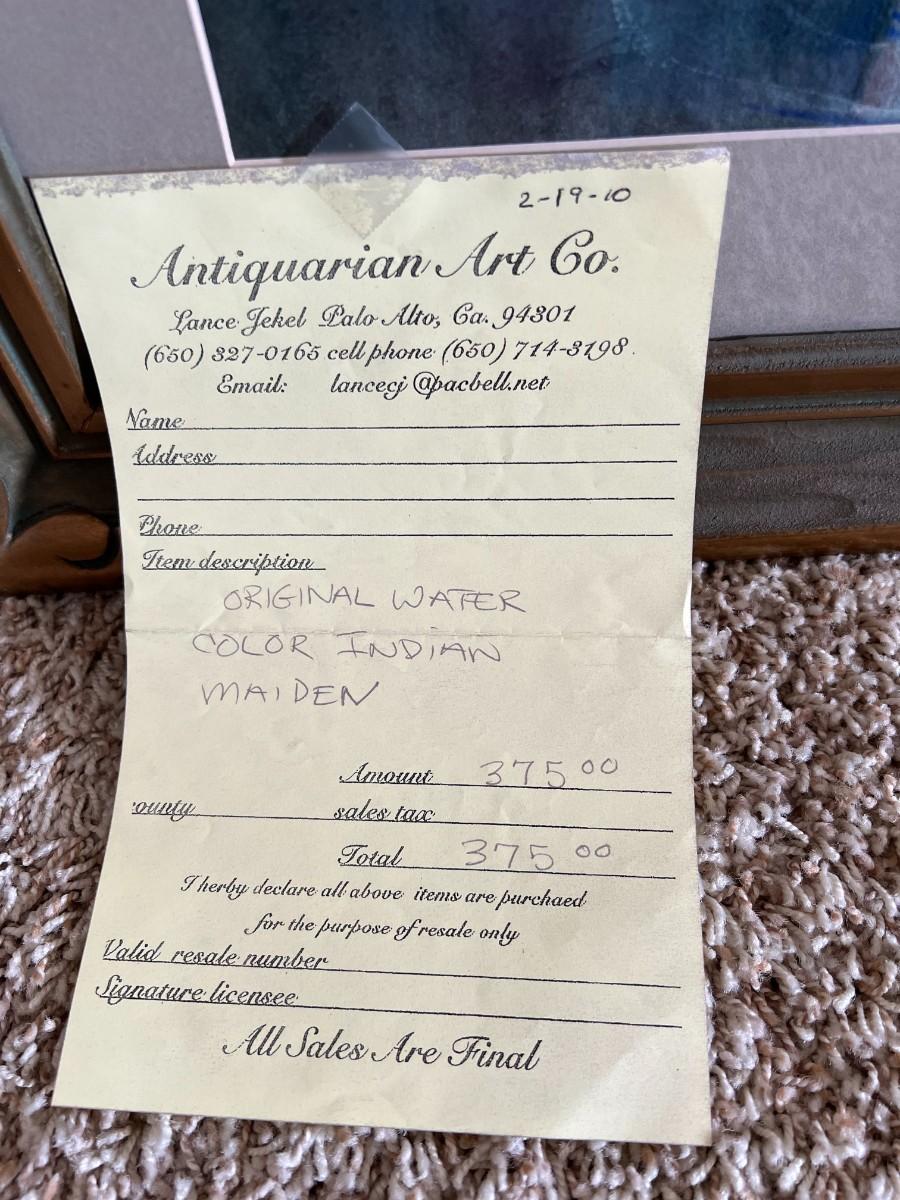 2-19-10
Antiquarian Art Co.
Lance Jekel Palo Alto, Ca. 94301
(650) 327-0165 cell phone (650) 714-3198.
Email: lancecj @pacbell.net
Name
Address
Phone
Item description
ORIGINAL WATER
COLOR INDIAN
MAIDEN
Amount 375 00
ounty sales tax
Total 375 00
I herby declare all above items are purchaed
for the purpose of resale only
Valid resale number
Signature licensee
All Sales Are Final